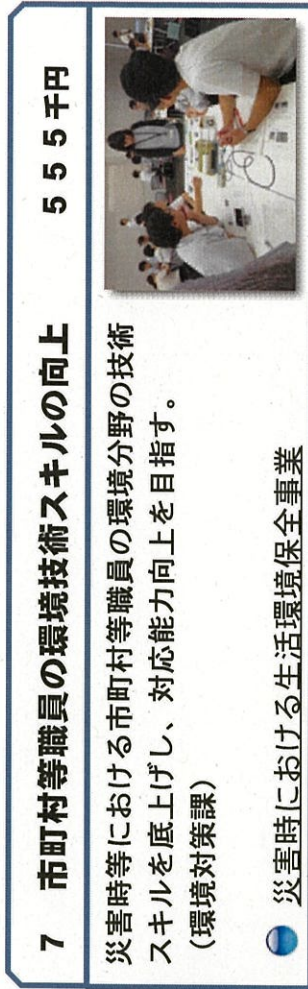 7　市町村等職員の環境技術スキルの向上　５５５千円
災害時等における市町村等職員の環境分野の技術
スキルを底上げし、対応能力向上を目指す。
（環境対策課）
災害時における生活環境保全事業